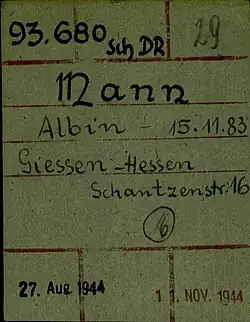 93.680 Sch DR 29
Mann
Albin - 15.11.83
Giessen-Hessen
Schantzenstr. 16
16
27. Aug. 1944
1 1. NOV. 1944